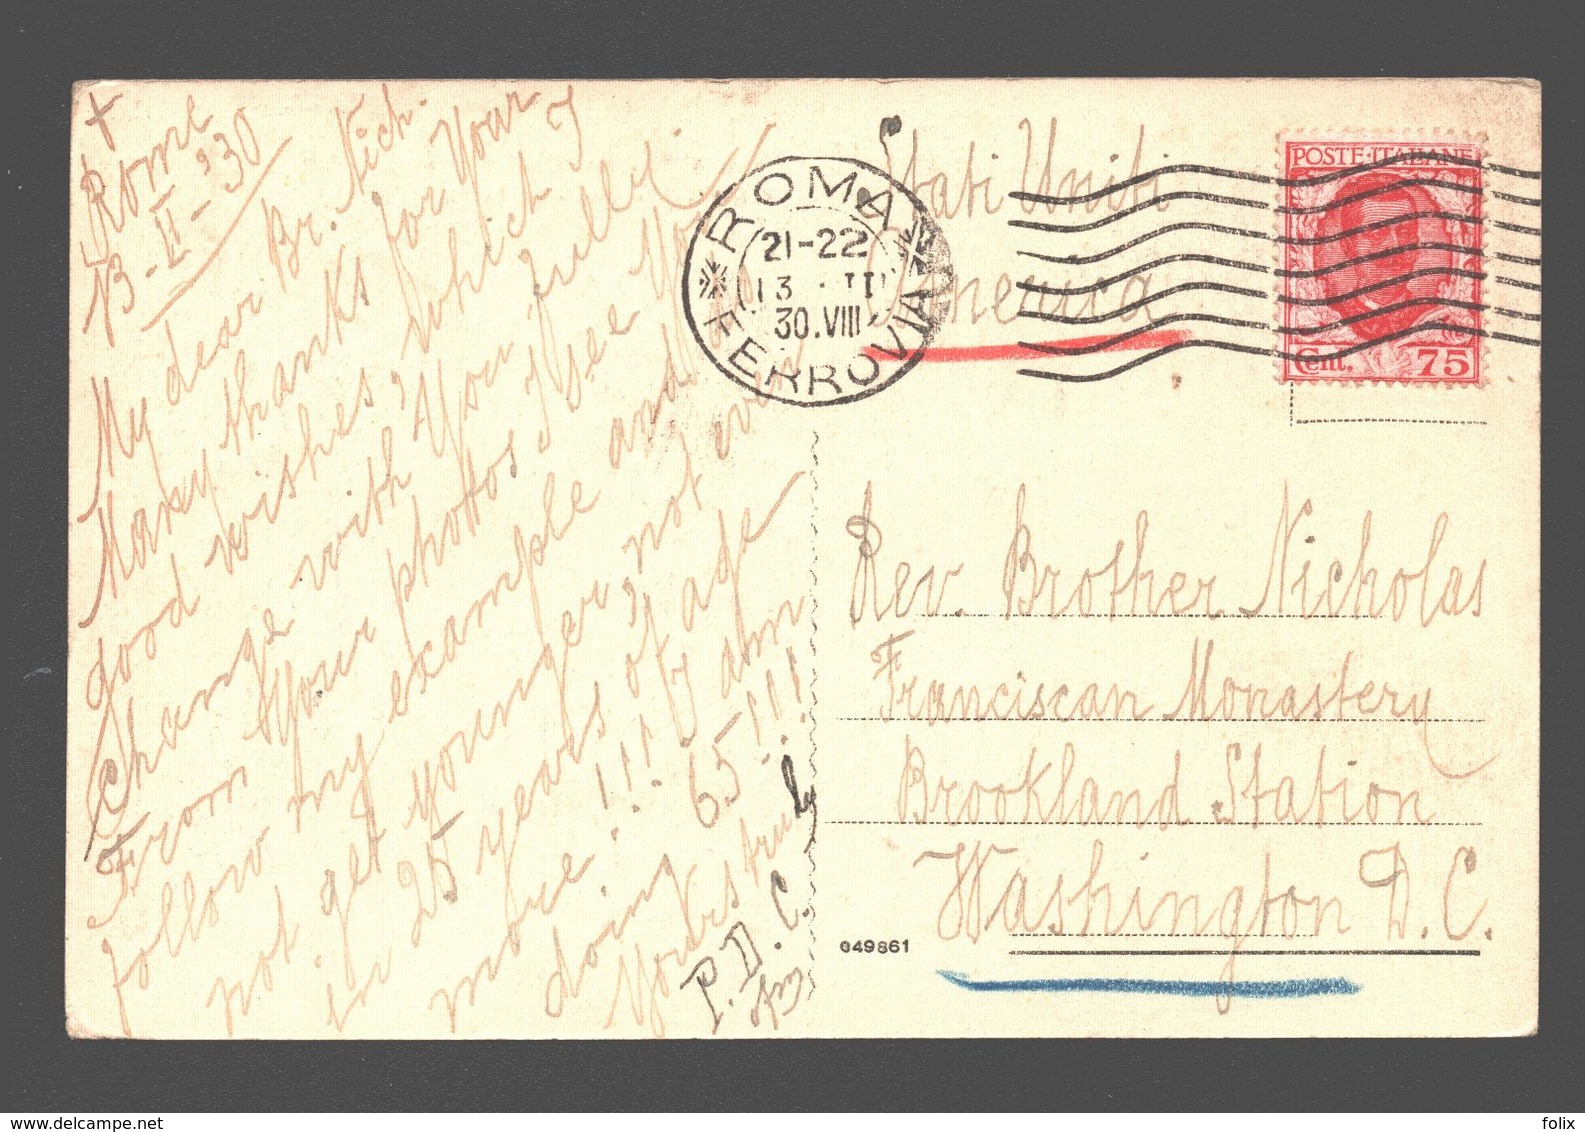 +
Rome
13-II-'30
My dear Br. Nich.
Many thanks for Your
good wishes, which I
Change with Your fully!
From Your photos I see You
follow my example and do
not get younger, not even
in 25 years of age
more!!! I am
doing 65!!!
Yours truly
P. D. C.
ROMA
21-22
13 · II
30.VIII
FERROVIA
Stati Uniti
America
POSTE·ITALIANE
Cent. 75
Rev. Brother Nicholas
Franciscan Monastery
Brookland Station
Washington D.C.
049861
felix
www.delcampe.net